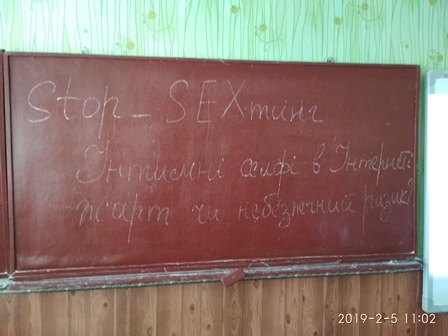 Stop - SEXтинг
Інтимні селфі в Інтернеті -
жарт чи небезпечний ризик?
2019-2-5 11:02